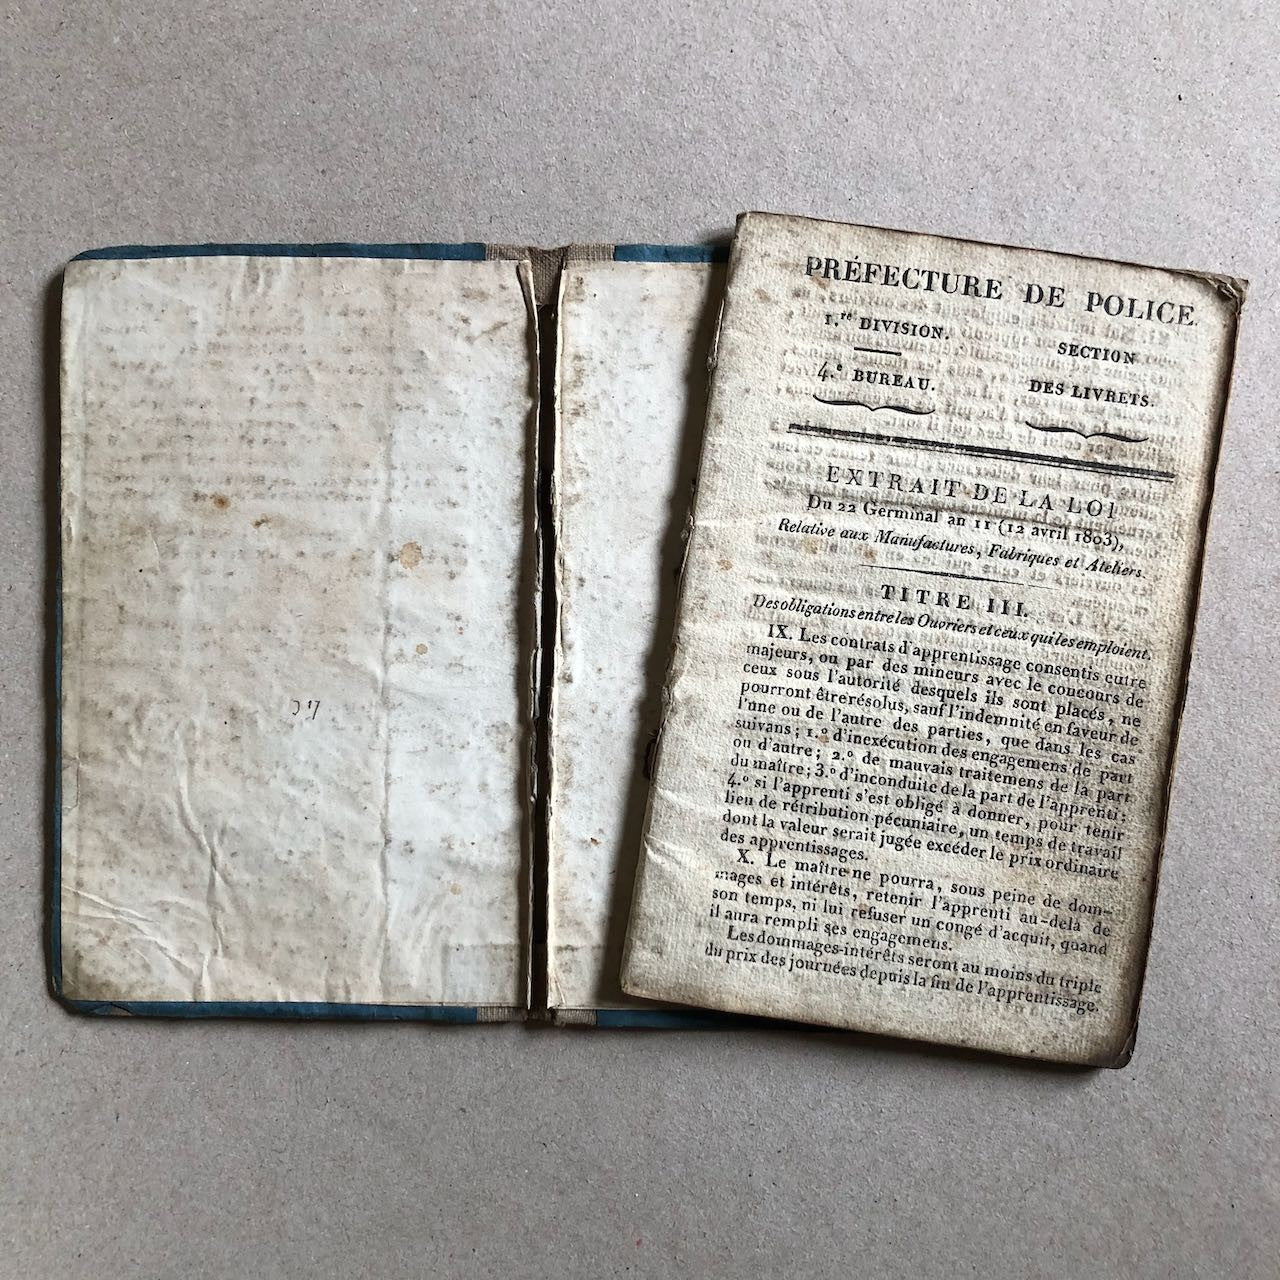 PRÉFECTURE DE POLICE.
1.re DIVISION.
4.e BUREAU.
SECTION
DES LIVRETS.
EXTRAIT DE LA LOI
Du 22 Germinal an 11 (12 avril 1803),
Relative aux Manufactures, Fabriques et Ateliers.
TITRE III.
Des obligations entre les Ouvriers et ceux qui les emploient.
IX. Les contrats d'apprentissage consentis entre
majeurs, ou par des mineurs avec le concours de
ceux sous l'autorité desquels ils sont placés, ne
pourront être résolus, sauf l'indemnité en faveur de
l'une ou de l'autre des parties, que dans les cas
suivans; 1.o d'inexécution des engagemens de part
ou d'autre; 2.o de mauvais traitemens de la part
du maître; 3.o d'inconduite de la part de l'apprenti;
4.o si l'apprenti s'est obligé à donner, pour tenir
lieu de rétribution pécuniaire, un temps de travail
dont la valeur serait jugée excéder le prix ordinaire
des apprentissages.
X. Le maître ne pourra, sous peine de dom-
mages et intérêts, retenir l'apprenti au-delà de
son temps, ni lui refuser un congé d'acquit, quand
il aura rempli ses engagemens.
Les dommages-intérêts seront au moins du triple
du prix des journées depuis la fin de l'apprentissage.